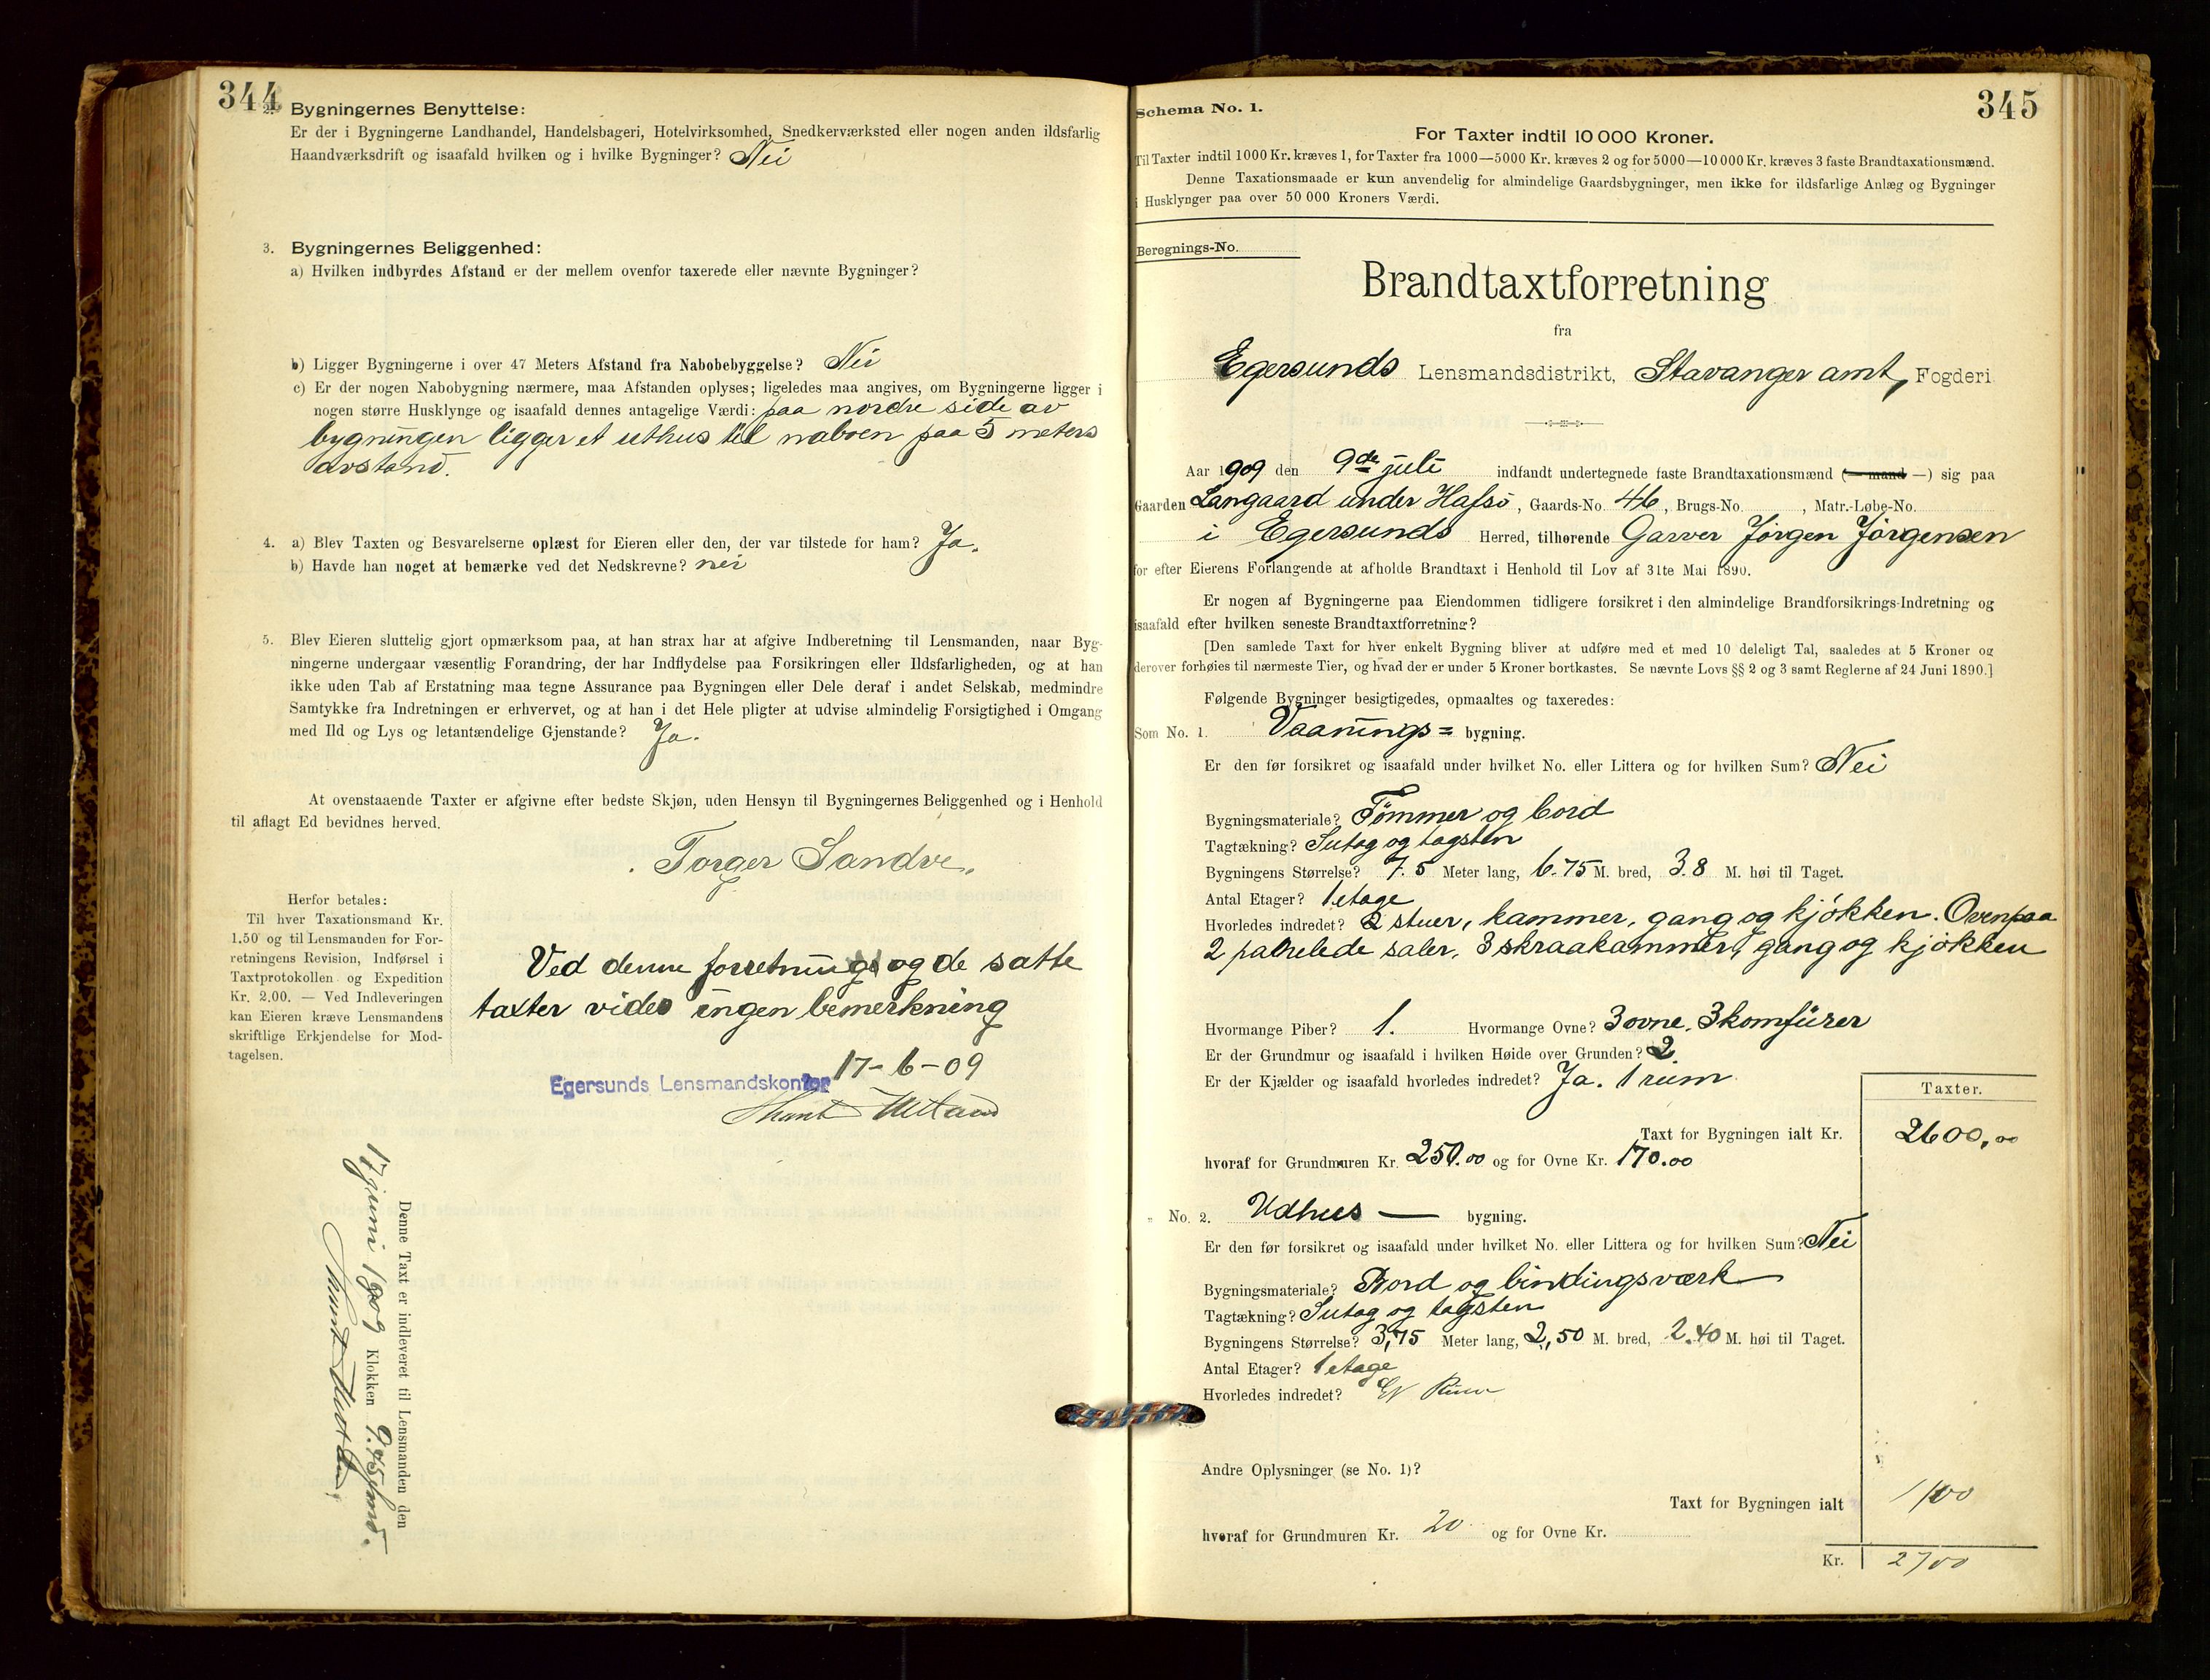 344
2. Bygningernes Benyttelse:
Er der i Bygningerne Landhandel, Handelsbageri, Hotelvirksomhed, Snedkerværksted eller nogen anden ildsfarlig
Haandværksdrift og isaafald hvilken og i hvilke Bygninger? Nei
3. Bygningernes Beliggenhed:
a) Hvilken indbyrdes Afstand er der mellem ovenfor taxerede eller nævnte Bygninger?
b) Ligger Bygningerne i over 47 Meters Afstand fra Nabobebyggelse? Nei
c) Er der nogen Nabobygning nærmere, maa Afstanden oplyses; ligeledes maa angives, om Bygningerne ligger i
nogen større Husklynge og isaafald dennes antagelige Værdi: paa nordre side av
bygningen ligger et uthus til naboen paa 5 meters
avstand.
4. a) Blev Taxten og Besvarelserne oplæst for Eieren eller den, der var tilstede for ham? Ja.
b) Havde han noget at bemærke ved det Nedskrevne? nei
5. Blev Eieren sluttelig gjort opmærksom paa, at han strax har at afgive Indberetning til Lensmanden, naar Byg-
ningerne undergaar væsentlig Forandring, der har Indflydelse paa Forsikringen eller Ildsfarligheden, og at han
ikke uden Tab af Erstatning maa tegne Assurance paa Bygningen eller Dele deraf i andet Selskab, medmindre
Samtykke fra Indretningen er erhvervet, og at han i det Hele pligter at udvise almindelig Forsigtighed i Omgang
med Ild og Lys og letantændelige Gjenstande? Ja.
At ovenstaaende Taxter er afgivne efter bedste Skjøn, uden Hensyn til Bygningernes Beliggenhed og i Henhold
til aflagt Ed bevidnes herved.
Torger Sandve.
Herfor betales:
Til hver Taxationsmand Kr.
1.50 og til Lensmanden for For-
retningens Revision, Indførsel i
Taxtprotokollen og Expedition
Kr. 2.00. — Ved Indleveringen
kan Eieren kræve Lensmandens
skriftlige Erkjendelse for Mod-
tagelsen.
Ved denne forretning og de satte
taxter vides ingen bemerkning
Egersunds Lensmandskontor 17-6-09
Denne Taxt er indleveret til Lensmanden den
17 juni 1909 Klokken 9.45 fmd.
345
Schema No. 1.
For Taxter indtil 10 000 Kroner.
Til Taxter indtil 1000 Kr. kræves 1, for Taxter fra 1000—5000 Kr. kræves 2 og for 5000—10 000 Kr. kræves 3 faste Brandtaxationsmænd.
Denne Taxationsmaade er kun anvendelig for almindelige Gaardsbygninger, men ikke for ildsfarlige Anlæg og Bygninger
i Husklynger paa over 50 000 Kroners Værdi.
Beregnings-No.
Brandtaxtforretning
fra
Egersunds Lensmandsdistrikt, Stavanger amt, Fogderi
Aar 1909 den 9de juli indfandt undertegnede faste Brandtaxationsmænd (— mand —) sig paa
Gaarden Langaard under Hafsö, Gaards-No. 46, Brugs-No. , Matr.-Løbe-No.
i Egersunds Herred, tilhørende Garver Jörgen Jörgensen
for efter Eierens Forlangende at afholde Brandtaxt i Henhold til Lov af 31te Mai 1890.
Er nogen af Bygningerne paa Eiendommen tidligere forsikret i den almindelige Brandforsikrings-Indretning og
isaafald efter hvilken seneste Brandtaxtforretning?
[Den samlede Taxt for hver enkelt Bygning bliver at udføre med et med 10 deleligt Tal, saaledes at 5 Kroner og
derover forhøies til nærmeste Tier, og hvad der er under 5 Kroner bortkastes. Se nævnte Lovs §§ 2 og 3 samt Reglerne af 24 Juni 1890.]
Følgende Bygninger besigtigedes, opmaaltes og taxeredes:
Som No. 1. Vaanings= bygning.
Er den før forsikret og isaafald under hvilket No. eller Littera og for hvilken Sum? Nei
Bygningsmateriale? Tömmer og bord
Tagtækning? Sutag og tagsten
Bygningens Størrelse? 7.5 Meter lang, 6.75 M. bred, 3.8 M. høi til Taget.
Antal Etager? 1 etage
Hvorledes indredet? 2 stuer, kammer, gang og kjökken. Ovenpaa
2 panelede saler, 3 skraakammer, gang og kjökken
Hvormange Piber? 1. Hvormange Ovne? 3 ovne. 3 komfürer
Er der Grundmur og isaafald i hvilken Høide over Grunden? 2.
Er der Kjælder og isaafald hvorledes indredet? Ja. 1 rum
Taxter.
Taxt for Bygningen ialt Kr. 2600,00
hvoraf for Grundmuren Kr. 250.00 og for Ovne Kr. 170.00
" No. 2. Udhus — bygning.
Er den før forsikret og isaafald under hvilket No. eller Littera og for hvilken Sum? Nei
Bygningsmateriale? Bord og bindingsværk
Tagtækning? Sutag og tagsten
Bygningens Størrelse? 3,75 Meter lang, 2,50 M. bred, 2.40 M. høi til Taget.
Antal Etager? 1 etage
Hvorledes indredet? Et Rum
Andre Oplysninger (se No. 1)?
Taxt for Bygningen ialt 100
hvoraf for Grundmuren Kr. 20 og for Ovne Kr.
Kr. 2700